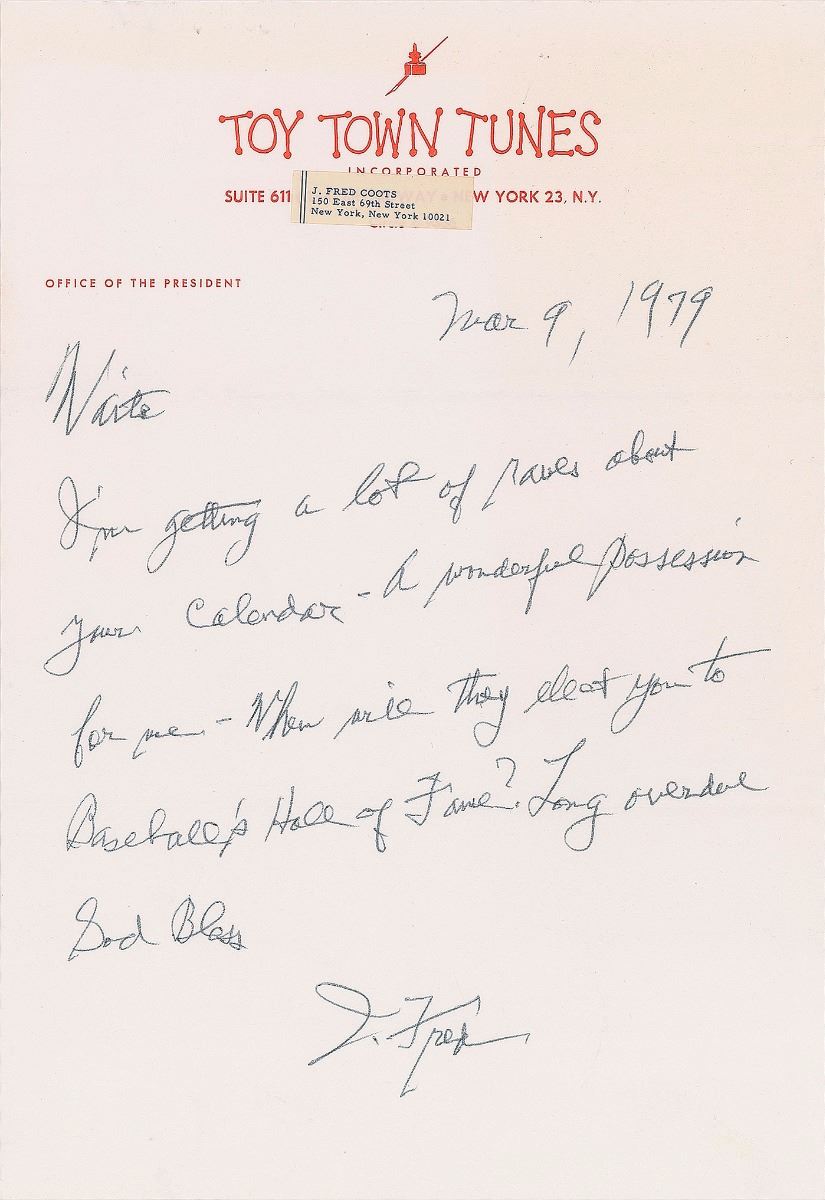 TOY TOWN TUNES
INCORPORATED
SUITE 611 WAY • NEW YORK 23, N.Y.
J. FRED COOTS
150 East 69th Street
New York, New York 10021
OFFICE OF THE PRESIDENT
Mar 9, 1979
Waite
I'm getting a lot of raves about
your Calendar - A wonderful possession
for me. - When will they elect you to
Baseball's Hall of Fame? Long overdue
God Bless
J. Fred